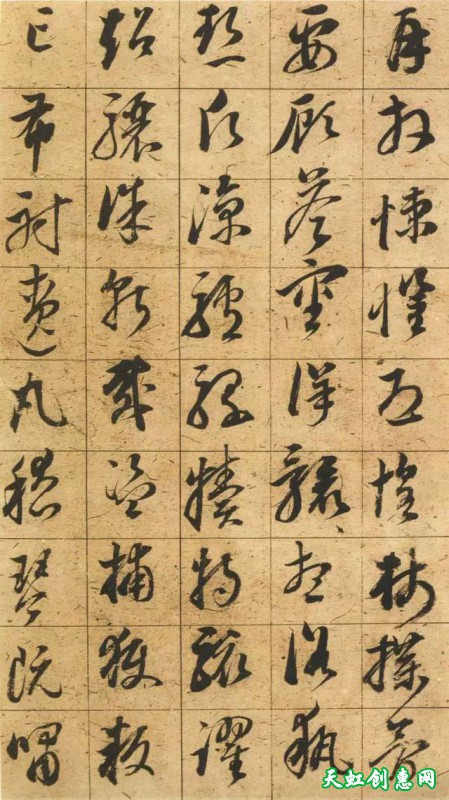 再拜悚懼恐惶牋牒簡
要顧答審詳骸想浴執
熱願涼驢騾犢特駭躍
超驤誅斬賊盜捕獲叛
亡布射遼丸嵇琴阮嘯
天虹创意网